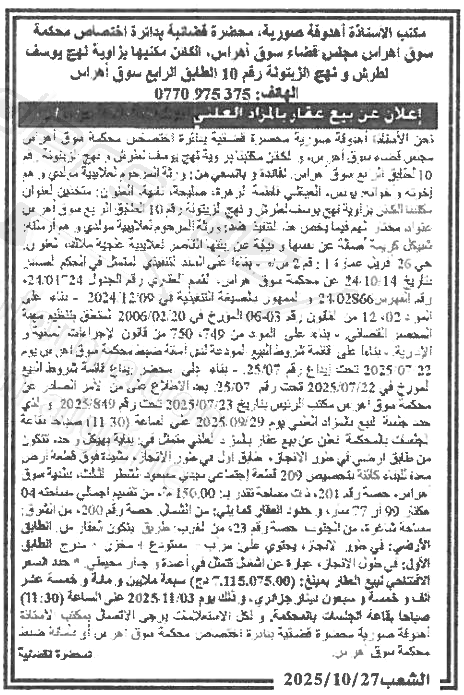 مكتب الاستاذة أهدوقة صورية، محضرة قضائية بدائرة اختصاص محكمة
سوق أهراس مجلس قضاء سوق أهراس، الكائن مكتبها بزاوية نهج يوسف
لطرش و نهج الزيتونة رقم 10 الطابق الرابع سوق أهراس
الهاتف: 0770 975 375
إعلان عن بيع عقار بالمزاد العلني
نحن الأستاذة أهدوقة صورية محضرة قضائية بدائرة اختصاص محكمة سوق أهراس
مجلس قضاء سوق أهراس، و الكائن مكتبنا بزاوية نهج يوسف لطرش و نهج الزيتونة رقم
10 الطابق الرابع سوق أهراس. لفائدة و بالسعي من: ورثة المرحوم علايبية مولدي و هم
إخوته و أخواته: يونس، العيفة، فاطمة الزهرة، صليحة، نفيسة، العنوان: متخذين لعنوان
مكتبنا الكائن بزاوية نهج يوسف لطرش و نهج الزيتونة رقم 10 الطابق الرابع سوق أهراس
عنوان مختار لهم فيما يخص هذا التنفيذ. ضد: ورثة المرحوم علايبية مولدي و هم أرملته:
كريمة أصالة عن نفسها و نيابة عن بنتها القاصر علايبية
حي 26 أفريل عمارة أ رقم 2 - بناء على السند التنفيذي المتمثل في الحكم الصادر
بتاريخ 24/10/14 عن محكمة سوق أهراس، القسم العقاري رقم الجدول 24/01724
رقم الفهرس 24/02866 و الممهور بالصيغة التنفيذية في 2024/12/09 - بناء على
المواد 02، 12 من القانون رقم 03-06 المؤرخ في 2006/02/20 المتعلق بتنظيم مهنة
المحضر القضائي. - بناء على المواد من 749، 750 من قانون الإجراءات المدنية و
الإدارية. - بناءا على قائمة شروط البيع المودعة لدى أمانة ضبط محكمة سوق أهراس يوم
2025-07-22 تحت إيداع رقم 25/07. - بناء على محضر إيداع قائمة شروط البيع
المؤرخ في 2025/07/22 تحت رقم 25/07. بعد الإطلاع على من الأمر الصادر عن
محكمة سوق أهراس مكتب الرئيس بتاريخ 2025/07/23 تحت رقم 2025/849 و الذي
حدد جلسة البيع بالمزاد العلني يوم 2025/09/29 على الساعة (11:30) صباحا بقاعة
الجلسات بالمحكمة. نعلن عن بيع عقار بالمزاد العلني متمثل في: بناية بهيكل واحد تتكون
من طابق أرضي في طور الانجاز، طابق أول في طور الانجاز، مشيدة فوق قطعة أرض
معدة للبناء كائنة بتخصيص 209 قطعة إجتماعي الشطر الثالث، بلدية سوق
أهراس، حصة رقم 201، ذات مساحة تقدر بـ: 150.00 م2 من تقسيم اجمالي مساحته 04
هكتار 99 آر 77 سار، و حدود العقار كما يلي: من الشمال: حصة رقم 200، من الشرق:
مساحة شاغرة، من الجنوب: حصة رقم 23، من الغرب: طريق. يتكون العقار من الطابق
الأرضي: في طور الانجاز، يحتوي على مرآب - مستودع - مخزن - مدرج الطابق
الأول: في طور الانجاز، عبارة عن أشغال تتمثل في أعمدة و جدار محيطي. * حدد السعر
الافتتاحي لبيع العقار بمبلغ: (7.115.075.00 دج) سبعة ملايين و مائة و خمسة عشر
الف و خمسة و سبعون دينار جزائري، و ذلك يوم 2025/11/03 على الساعة (11:30)
صباحا بقاعة الجلسات بالمحكمة. و لكل الاستعلامات يرجى الاتصال بمكتب الأستاذة
أهدوقة صورية محضرة قضائية بدائرة اختصاص محكمة سوق أهراس أو بأمانة ضبط
محكمة سوق أهراس.
المحضرة القضائية
الشعب 2025/10/27